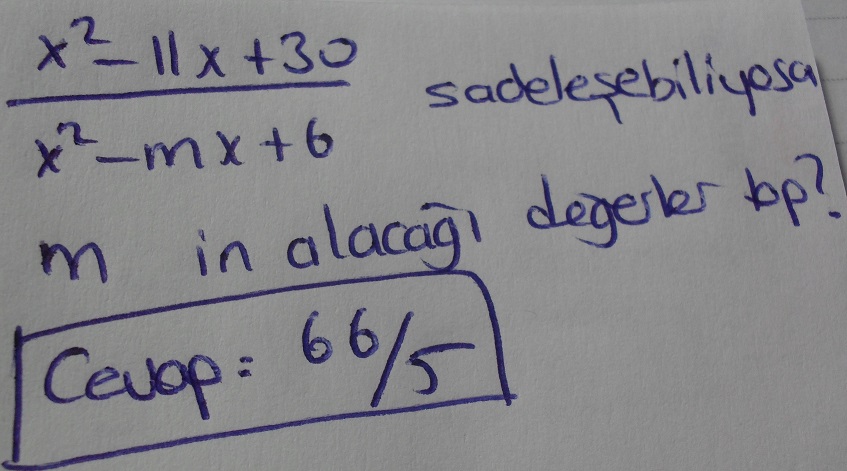 x² - 11x + 30 sadeleşebiliyosa
x² - mx + 6
m in alacağı değerler top?
Cevap = 66/5